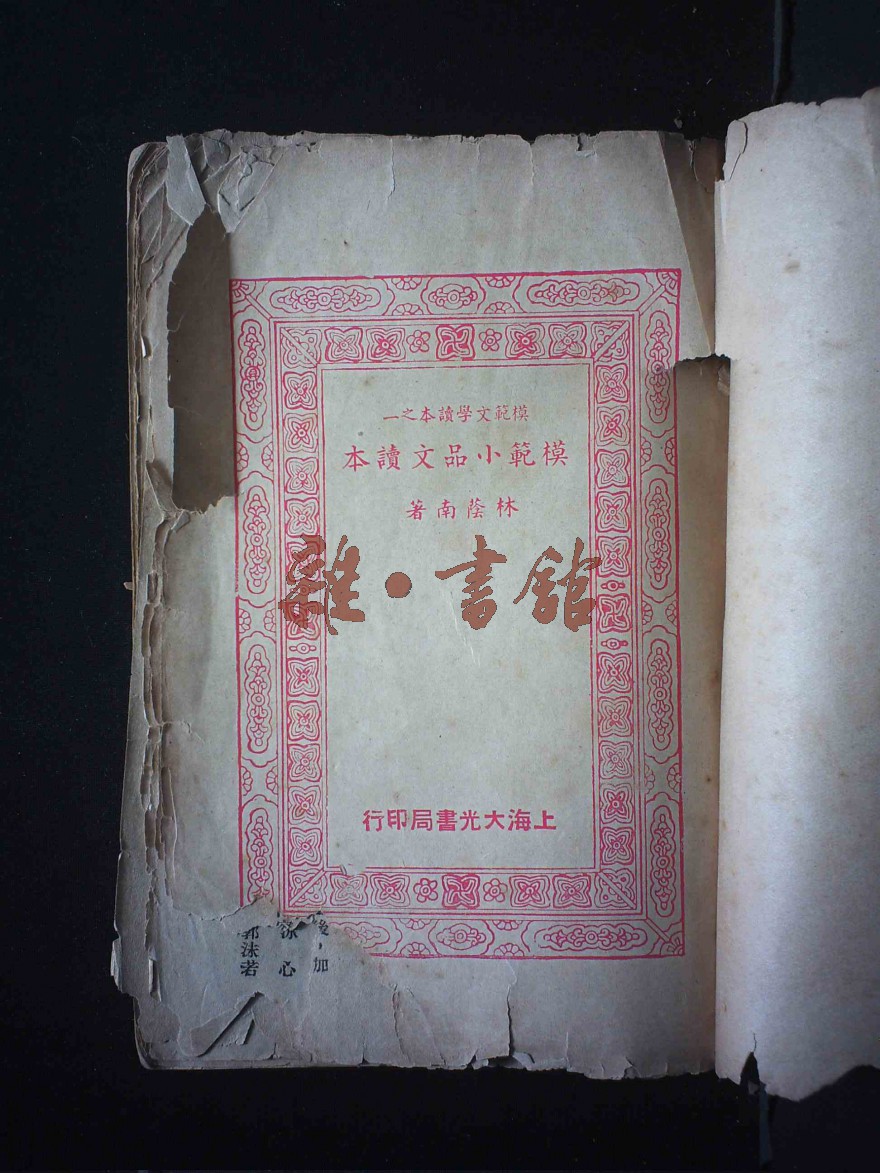 模範文學讀本之一
模範小品文讀本
林蔭南著
雜·書館
上海大光書局印行
，加
心
郭沫若